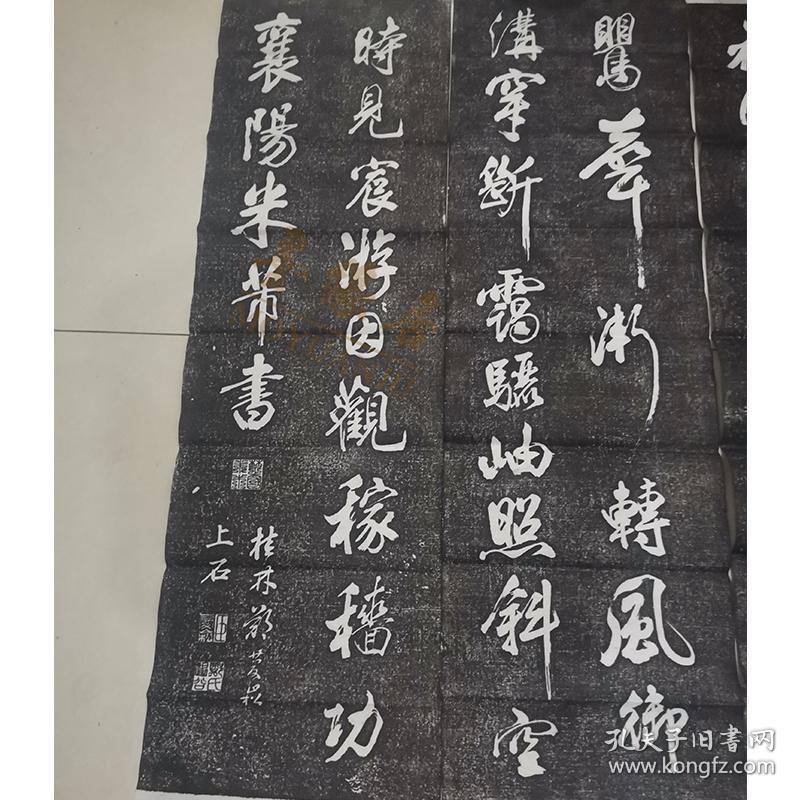 鷖華漸轉風御
溝穿斷靄驪岫照斜空
時見宸游因觀稼穡功
襄陽米芾書
桂林鄭
上石
孔夫子旧书网
www.kongfz.com